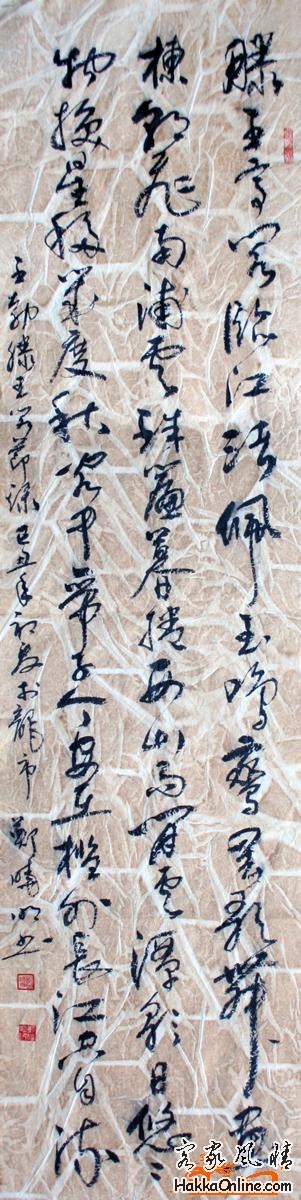 滕王高阁臨江渚佩玉鳴鸞罷歌舞畫
棟朝飛南浦雲珠簾暮捲西山雨閒雲潭影日悠々
物換星移几度秋阁中帝子今安在檻外長江空自流
王勃滕王阁節錄己丑年初於龍市鄭曉明书
客家風情
HakkaOnline.com